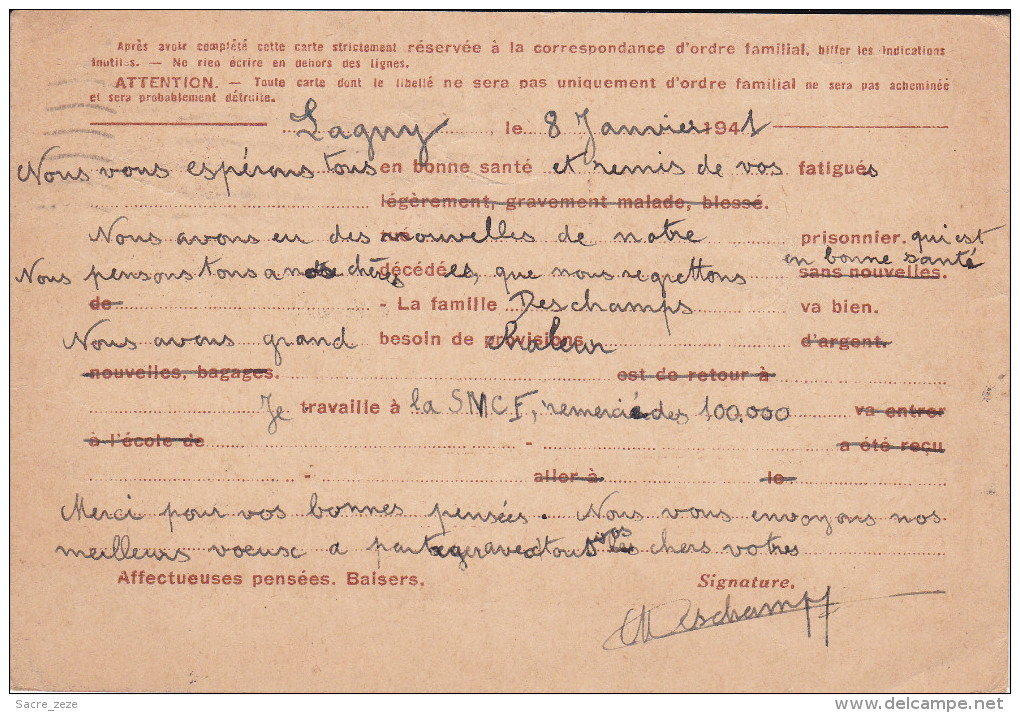 Après avoir complété cette carte strictement réservée à la correspondance d'ordre familial, biffer les indications
inutiles. — Ne rien écrire en dehors des lignes.
ATTENTION. — Toute carte dont le libellé ne sera pas uniquement d'ordre familial ne sera pas acheminée
et sera probablement détruite.
Lagny, le 8 Janvier 1941
Nous vous espérons tous en bonne santé et remis de vos fatigués
légèrement, gravement malade, blessé.
Nous avons eu des nouvelles de notre prisonnier. qui est
en bonne santé
Nous pensons tous a nos chères décédées, que nous regrettons sans nouvelles.
de - La famille Deschamps va bien.
Nous avons grand besoin de provisions chaleur d'argent.
nouvelles, bagages. est de retour à
Je travaille à la SNCF, remercié des 100.000 va entrer
à l'école de - a été reçu
- aller à le
Merci pour vos bonnes pensées. Nous vous envoyons nos
meilleurs voeux a partager avec tous vos chers votres
Affectueuses pensées. Baisers. Signature.
Deschamps
Sacre_zeze
delcampe.net